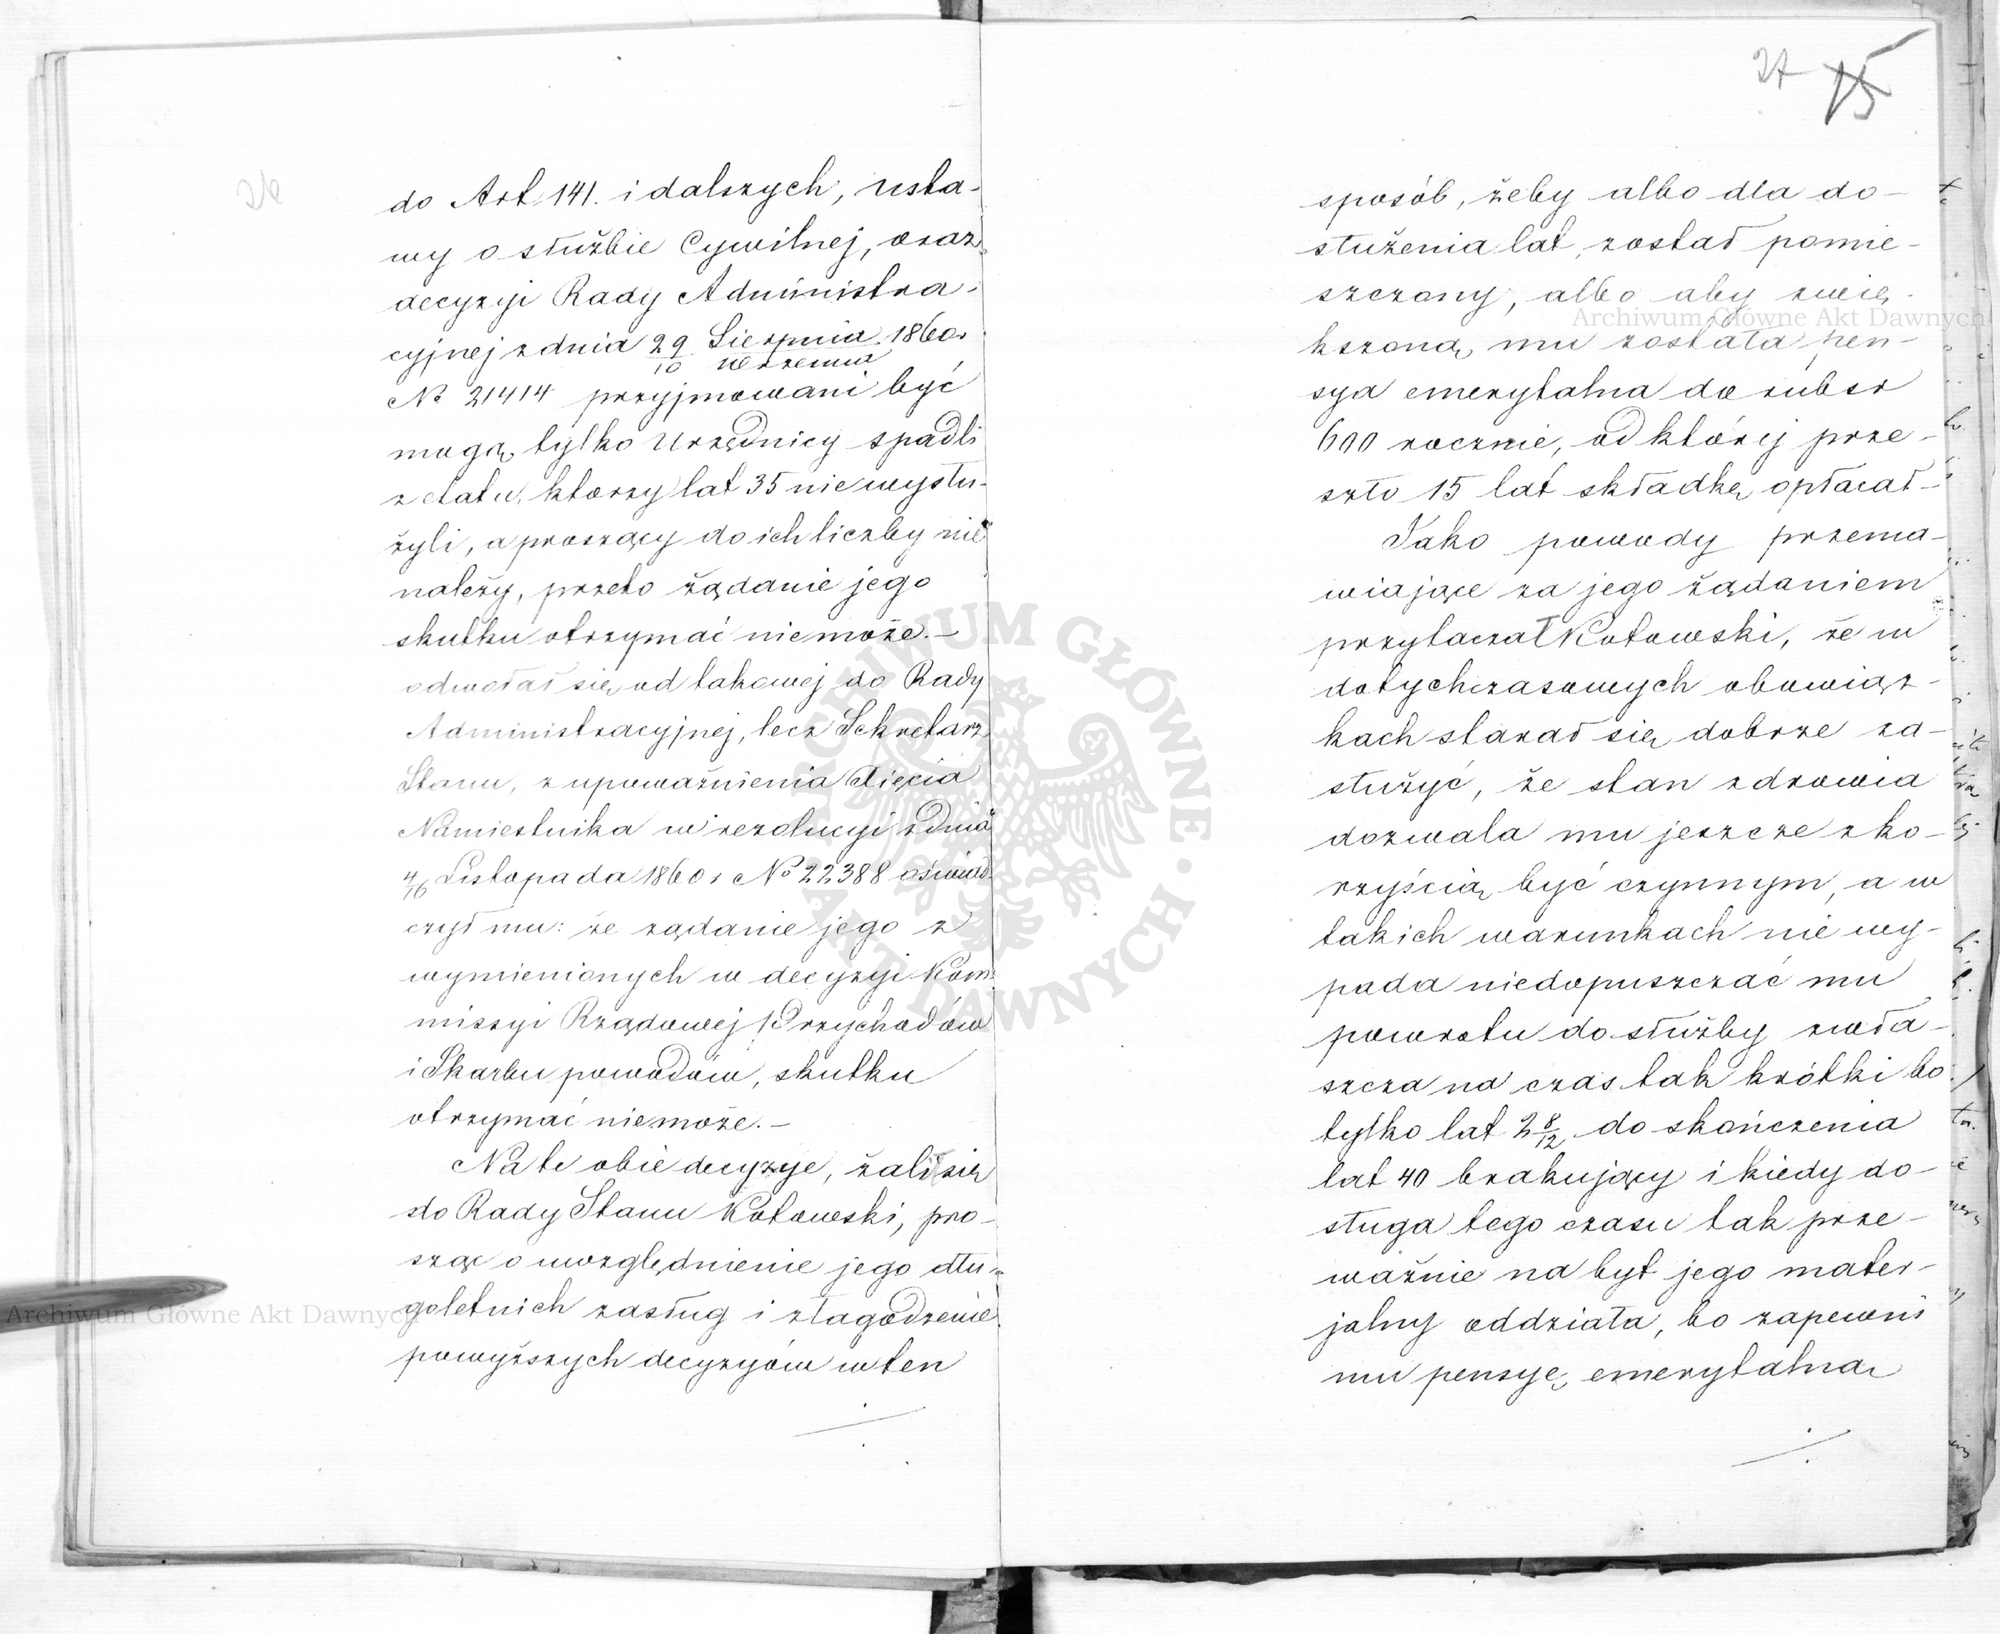 26
do Art 141. i dalszych, usta-
wy o służbie Cywilnej, oraz
decyzyi Rady Administra-
cyjnej z dnia 29 Sierpnia 1860 r
10 Września
№ 21414 przyjmowani być
mogą, tylko Urzędnicy spadli
z etatu, którzy lat 35 nie wysłu-
żyli, a proszący do ich liczby nie
należy, przeto żądanie jego
skutku otrzymać nie może. —
odwołał się od takowej do Rady
Administracyjnej, lecz Sekretarz
Stanu, z upoważnienia Xięcia
Namiestnika w rezolucyi z dnia
4/16 Listopada 1860 r № 22388 oświad-
czył mu: że żądanie jego z
wymienionych w decyzyi Kom-
missyi Rządowej Przychodów
i Skarbu powodów, skutku
otrzymać nie może. —
Na te obie decyzye, żali się
do Rady Stanu Kotowski, pro-
sząc o uwzględnienie jego dłu-
goletnich zasług i złagodzenie
powyższych decyzyów w ten
27 15
sposób, żeby albo dla do-
służenia lat, został pomie-
szczony, albo aby zwię-
kszoną mu została pen-
sya emerytalna do rubsr
600 rocznie, od której prze-
szło 15 lat składkę opłacał —
Jako powody przema-
wiające za jego żądaniem
przytaczał Kotowski, że w
dotychczasowych obowiąz-
kach starał się dobrze za-
służyć, że stan zdrowia
dozwala mu jeszcze z ko-
rzyścią być czynnym, a w
takich warunkach nie wy-
pada niedopuszczać mu
powrotu do służby zwła-
szcza na czas tak krótki bo
tylko lat 2 8/12 do skończenia
lat 40 brakujący i kiedy do-
sługa tego czasu tak prze-
ważnie na byt jego mater-
jalny oddziała, bo zapewni
mu pensyę emerytalną
Archiwum Główne Akt Dawnych
Archiwum Główne Akt Dawnych
ARCHIWUM GŁÓWNE AKT DAWNYCH